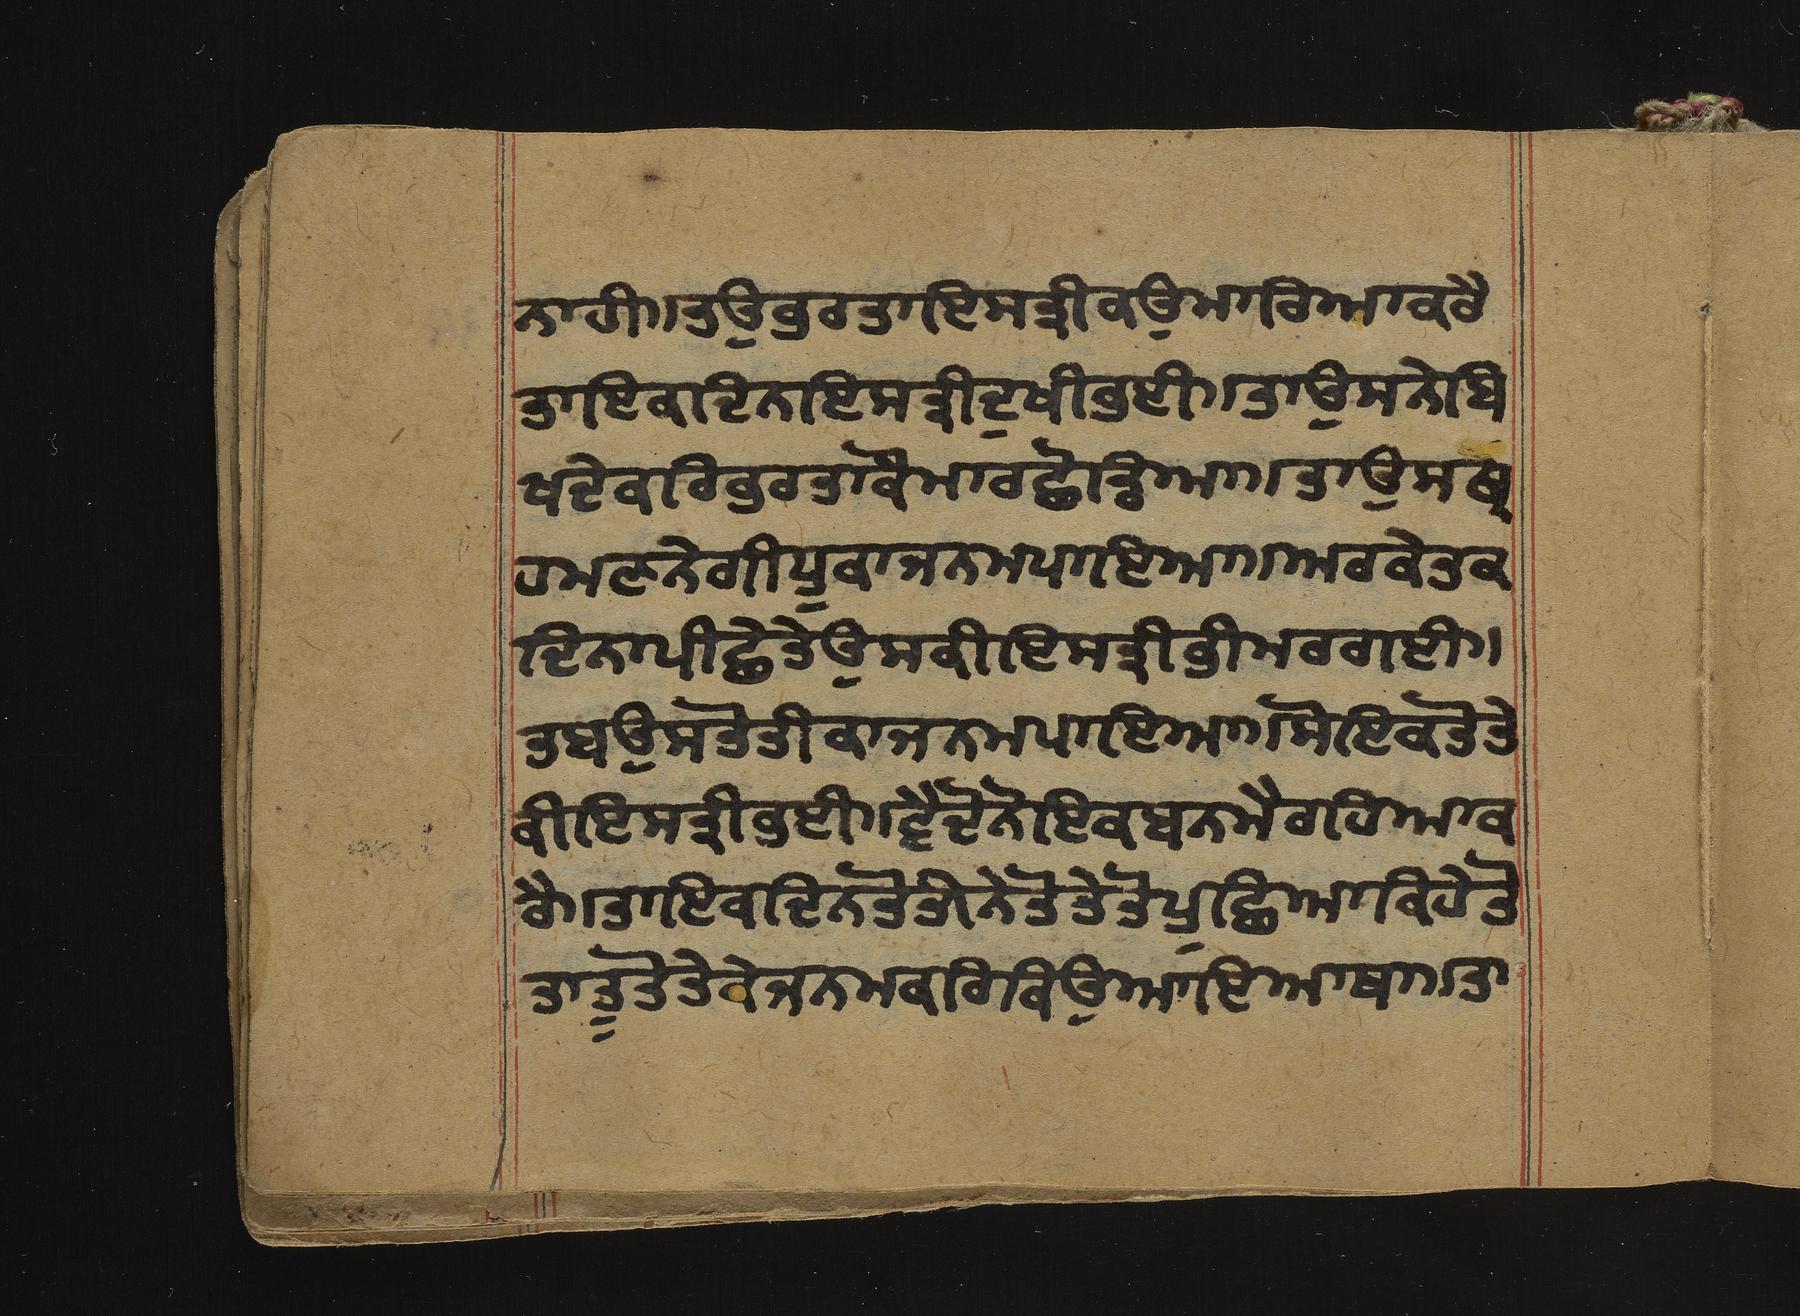 ਨਾਹੀ॥ਤਉਭੁਰਤਾਇਸਤ੍ਰੀਕਉਮਾਰਿਆਕਰੈ
ਤਾਇਕਦਿਨਇਸਤ੍ਰੀਦੁਖੀਭਈ॥ਤਾਉਸਨੇਬਿ
ਖਦੇਕਰਿਭੁਰਤਾਕੌਮਾਰਛੋਡਿਆ॥ਤਾਉਸਬ੍ਰ
ਹਮਣਨੇਗੀਧੁਕਾਜਨਮਪਾਇਆ॥ਅਰਕੇਤਕ
ਦਿਨਾਪੀਛੇਤੇਉਸਕੀਇਸਤ੍ਰੀਭੀਮਰਗਈ॥
ਤਬਉਸਤੋਤੀਕਾਜਨਮਪਾਇਆ॥ਸੋਇਕਤੋਤੇ
ਕੀਇਸਤ੍ਰੀਭਈ॥ਵੈਦੋਨੋਇਕਬਨਮੈਰਹਿਆਕ
ਰੈ॥ਤਾਇਕਦਿਨਤੋਤੀਨੇਤੋਤੇਤੋਪੁਛਿਆਕਿਹੇਤੋ
ਤਾਤੁਤੋਤੇਕੇਜਨਮਕਰਿਕਿਉਆਇਆਥਾ॥ਤਾ